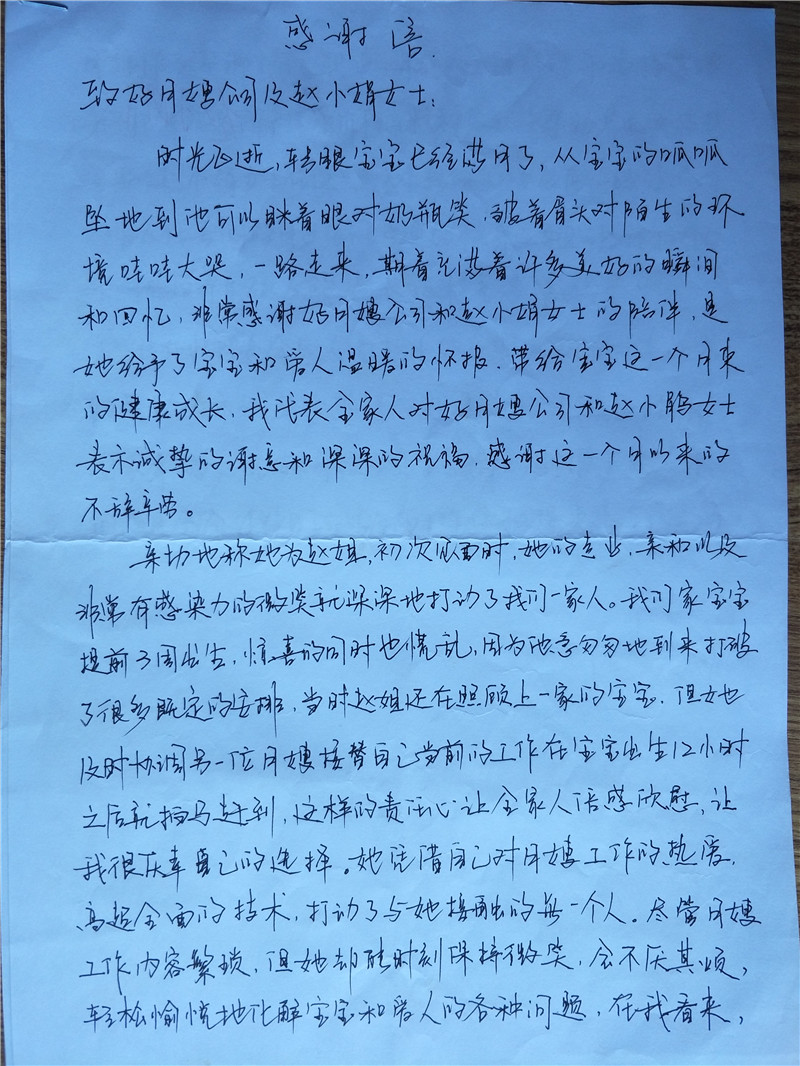 感谢信
致好月嫂公司及赵小娟女士：
时光飞逝，转眼宝宝已经满月了，从宝宝的呱呱
坠地到他可以眯着眼对奶瓶笑，皱着眉头对陌生的环
境哇哇大哭，一路走来，期着充满着许多美好的瞬间
和回忆，非常感谢好月嫂公司和赵小娟女士的陪伴，是
她给予了宝宝和爱人温暖的怀抱，带给宝宝这一个月来
的健康成长，我代表全家人对好月嫂公司和赵小鹃女士
表示诚挚的谢意和深深的祝福，感谢这一个月以来的
不辞辛劳。
亲切地称她为赵姐，初次见面时，她的专业，亲和以及
非常有感染力的微笑就深深地打动了我们一家人。我们家宝宝
提前3周出生，惊喜的同时也慌乱，因为他急匆匆地到来打破
了很多既定的安排，当时赵姐还在照顾上一家的宝宝，但她也
及时协调另一位月嫂接替自己当前的工作在宝宝出生12小时
之后就拍马赶到，这样的责任心让全家人倍感欣慰，让
我很庆幸自己的选择。她凭借自己对月嫂工作的热爱，
高超全面的技术，打动了与她接触的每一个人。尽管月嫂
工作内容繁琐，但她却能时刻保持微笑，会不厌其烦，
轻松愉悦地化解宝宝和爱人的各种问题，在我看来，